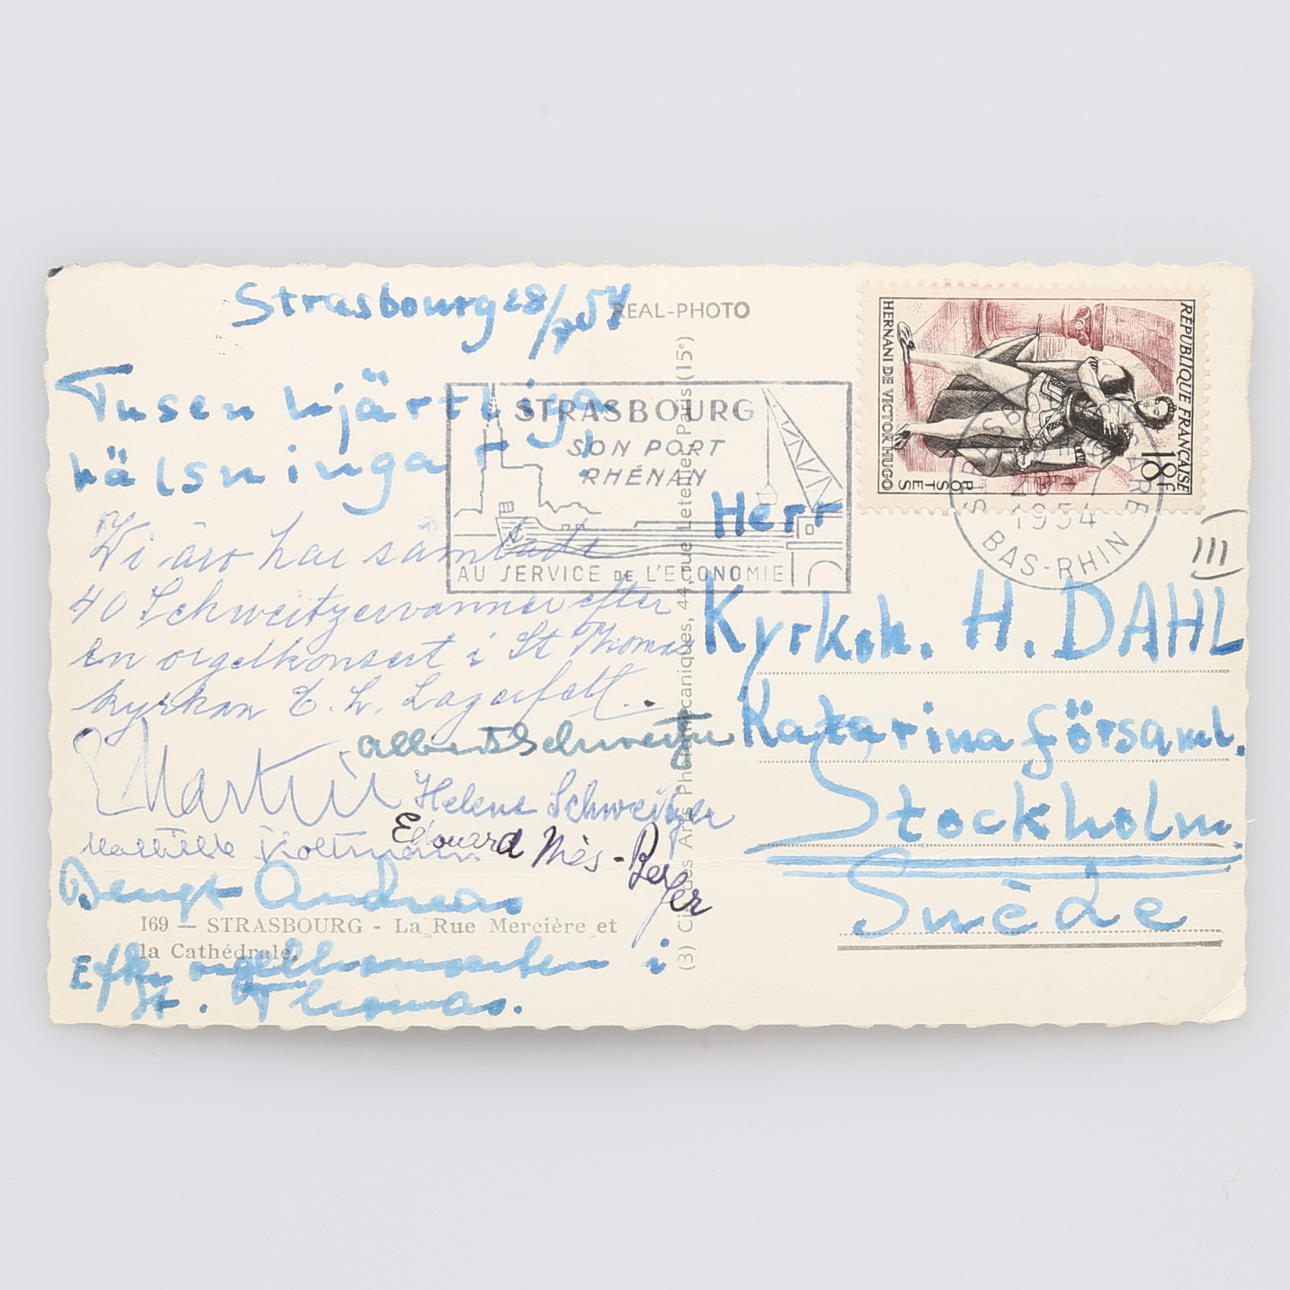 Strasbourg 28/7 54
REAL-PHOTO
Tusen hjärtliga
hälsningar!
Vi äro här samlade
40 Schweitzervänner efter
en orgelkonsert i St Thomas
kyrkan E. L. Lagerfelt.
Albert Schweitzer
Martin
Helene Schweitzer
Edouard Niès-Berger
Bengt Andreas
169 — STRASBOURG - La Rue Mercière et
la Cathédrale.
Efter orgelkonserten i
St. Thomas.
STRASBOURG
SON PORT
RHÉNAN
AU SERVICE DE L'ECONOMIE
(3) Cie des Arts Photomécaniques, 44, rue Letellier, Paris (15e)
RÉPUBLIQUE FRANÇAISE
HERNANI DE VICTOR HUGO
POSTES
18F
STRASBOURG GARE
1954
BAS-RHIN
III
Herr
Kyrkoh. H. DAHL
Katarina församl.
Stockholm
Suède